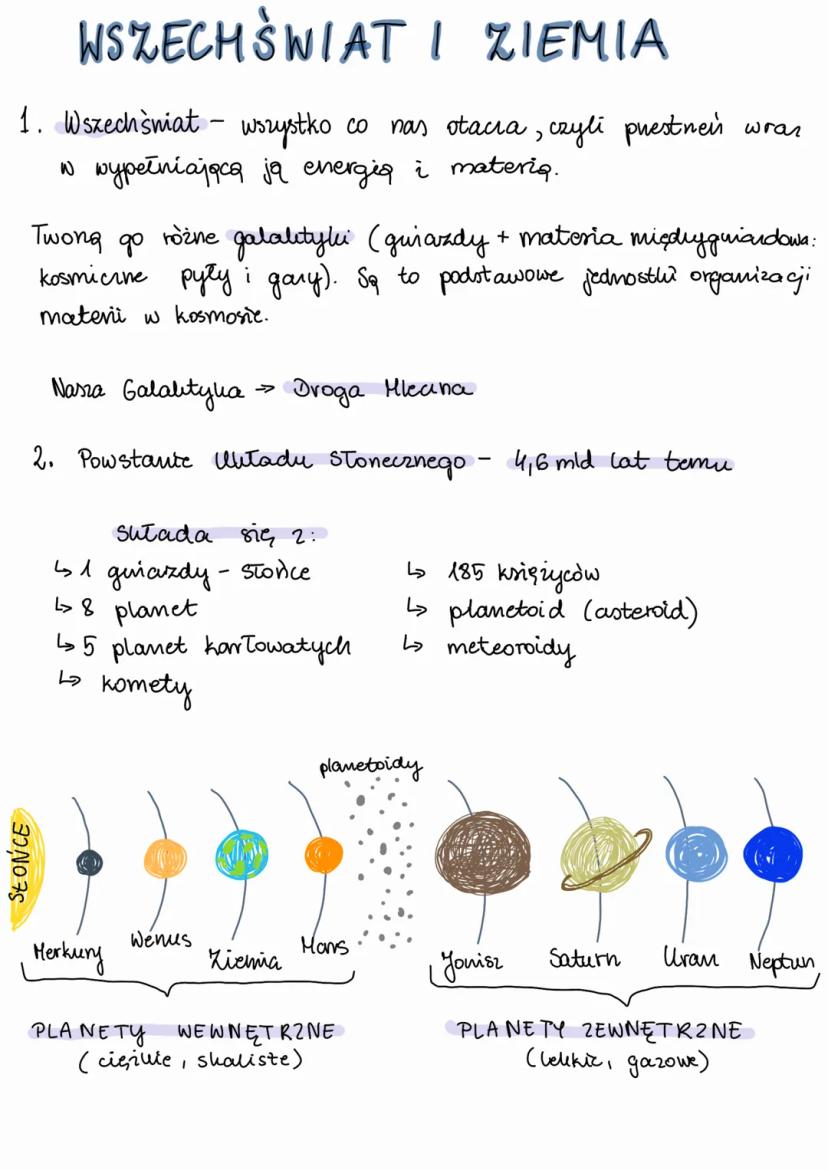 WSZECHŚWIAT I ZIEMIA
1. Wszechświat - wszystko co nas otacza, czyli przestrzeń wraz
w wypełniającą ją energią i materią.
Tworzą go różne galaktyki (gwiazdy + materia międzygwiazdowa:
kosmiczne pyły i gazy). Są to podstawowe jednostki organizacji
materii w kosmosie.
Nasza Galaktyka → Droga Mleczna
2. Powstanie Układu Słonecznego - 4,6 mld lat temu
składa się z:
↳ 1 gwiazdy - słońce
↳ 8 planet
↳ 5 planet karłowatych
↳ komety
↳ 185 księżyców
↳ planetoid (asteroid)
↳ meteoroidy
planetoidy
SŁOŃCE
Merkury Wenus Ziemia Mars Jowisz Saturn Uran Neptun
PLANETY WEWNĘTRZNE
(ciężkie, skaliste)
PLANETY ZEWNĘTRZNE
(lekkie, gazowe)